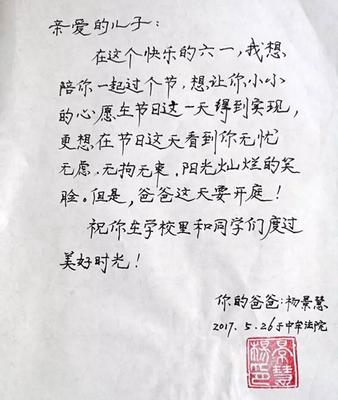 亲爱的儿子：
在这个快乐的六一，我想
陪你一起过个节，想让你小小
的心愿在节日这一天得到实现，
更想在节日这天看到你无忧
无虑、无拘无束、阳光灿烂的笑
脸。但是，爸爸这天要开庭！
祝你在学校里和同学们度过
美好时光！
你的爸爸：杨景慧
2017.5.26于中牟法院